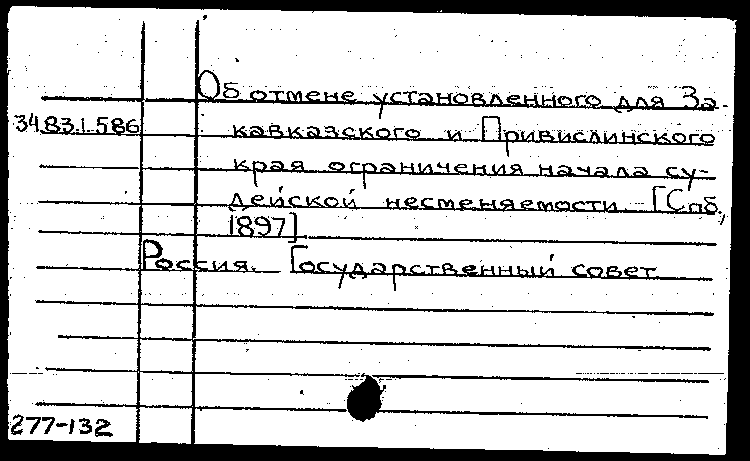 Об отмене установленного для За-
34.83.1.586 кавказского и Привислинского
края ограничения начала су-
дейской несменяемости. [Спб.,
1897].
Россия. Государственный совет
277-132